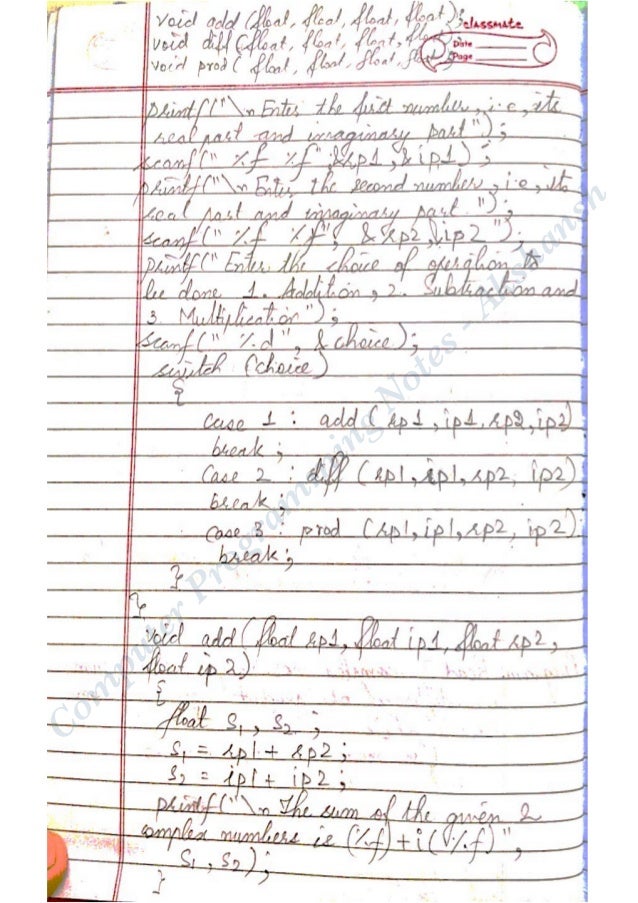 void add (float, float, float, float);
classmate
void diff (float, float, float, float);
Date
void prod ( float, float, float, float);
Page
printf("\n Enter the first number, i.e, its
real part and imaginary part");
scanf(" %f %f" &rp1, & ip1) ;
printf("\n Enter the second number, i.e, its
real part and imaginary part. ");
scanf(" %f %f", & rp2, &ip2 ");
printf(" Enter the choice of operation to
be done 1. Addition, 2. Subtraction and
3 Multiplication");
scanf(" %d", & choice);
switch (choice)
{
case 1 : add ( rp1, ip1, rp2, ip2)
break ;
case 2 : diff ( rp1, ip1, rp2, ip2)
break ;
case 3 : prod (rp1, ip1, rp2, ip2)
break;
}
}
void add ( float rp1, float ip1, float rp2,
float ip 2)
{
float S1, S2 ;
S1 = rp1 + rp2 ;
S2 = ip1 + ip2 ;
printf("\n The sum of the given 2
complex numbers is (%f) + i (%f)",
S1, S2);
}
Computer Programming Notes - Akshaansh